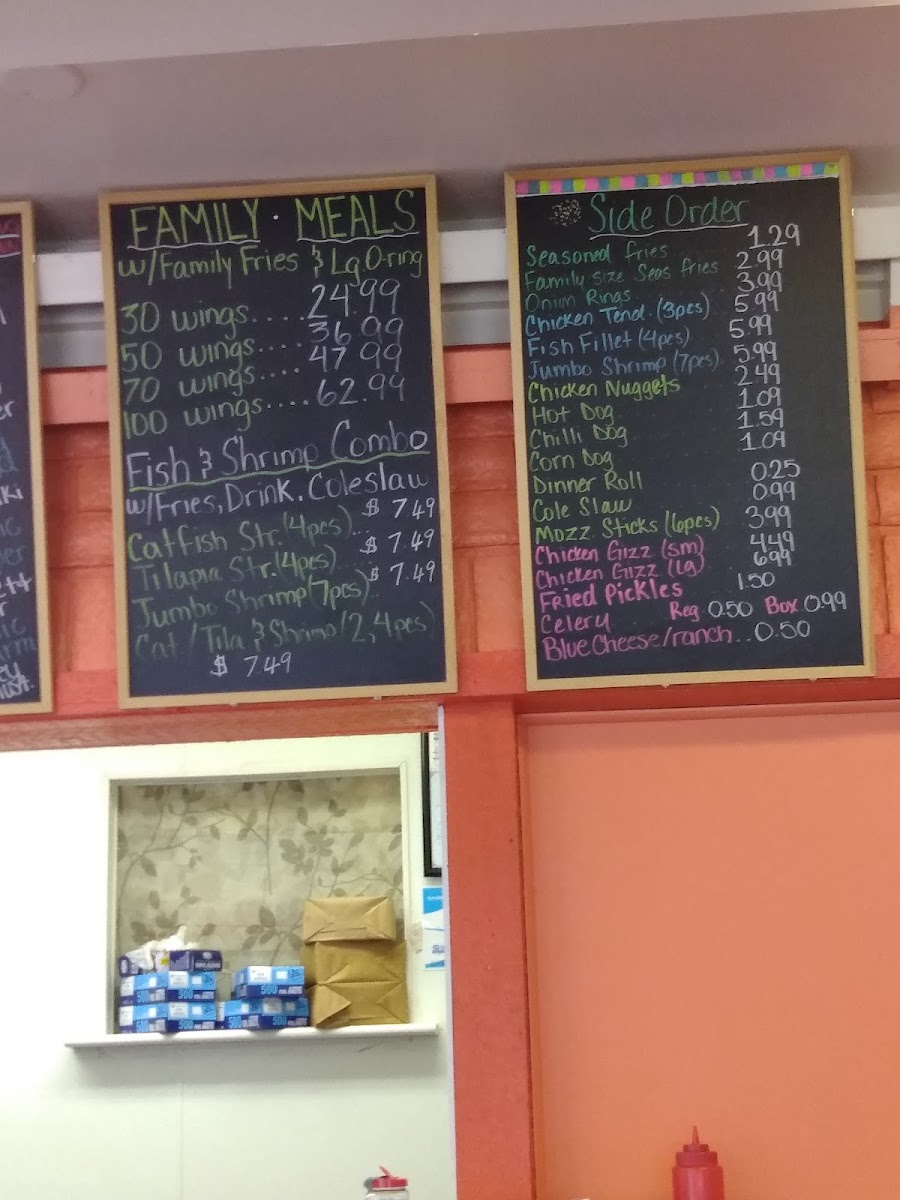 FAMILY · MEALS
w/Family Fries & Lg.O-ring
30 wings.....24.99
50 wings.....36.99
70 wings....47.99
100 wings....62.99
Fish & Shrimp Combo
w/Fries, Drink, Coleslaw
Catfish Str. (4pcs) $ 7.49
Tilapia Str. (4pcs) $ 7.49
Jumbo Shrimp (7pcs) $ 7.49
Cat / Tila & Shrimp (2,4pcs)
$ 7.49
Side Order
Seasoned fries 1.29
Family size Seas fries 2.99
Onion Rings 3.99
Chicken Tend. (3pcs) 5.99
Fish Fillet (4pcs) 5.99
Jumbo Shrimp (7pcs) 5.99
Chicken Nuggets 2.49
Hot Dog 1.09
Chilli Dog 1.59
Corn Dog 1.09
Dinner Roll 0.25
Cole Slaw 0.99
Mozz Sticks (6pcs) 3.99
Chicken Gizz (sm) 4.49
Chicken Gizz (lg) 6.99
Fried Pickles 1.50
Celery Reg 0.50 Box 0.99
Blue Cheese/ranch..0.50
500
500
500
500